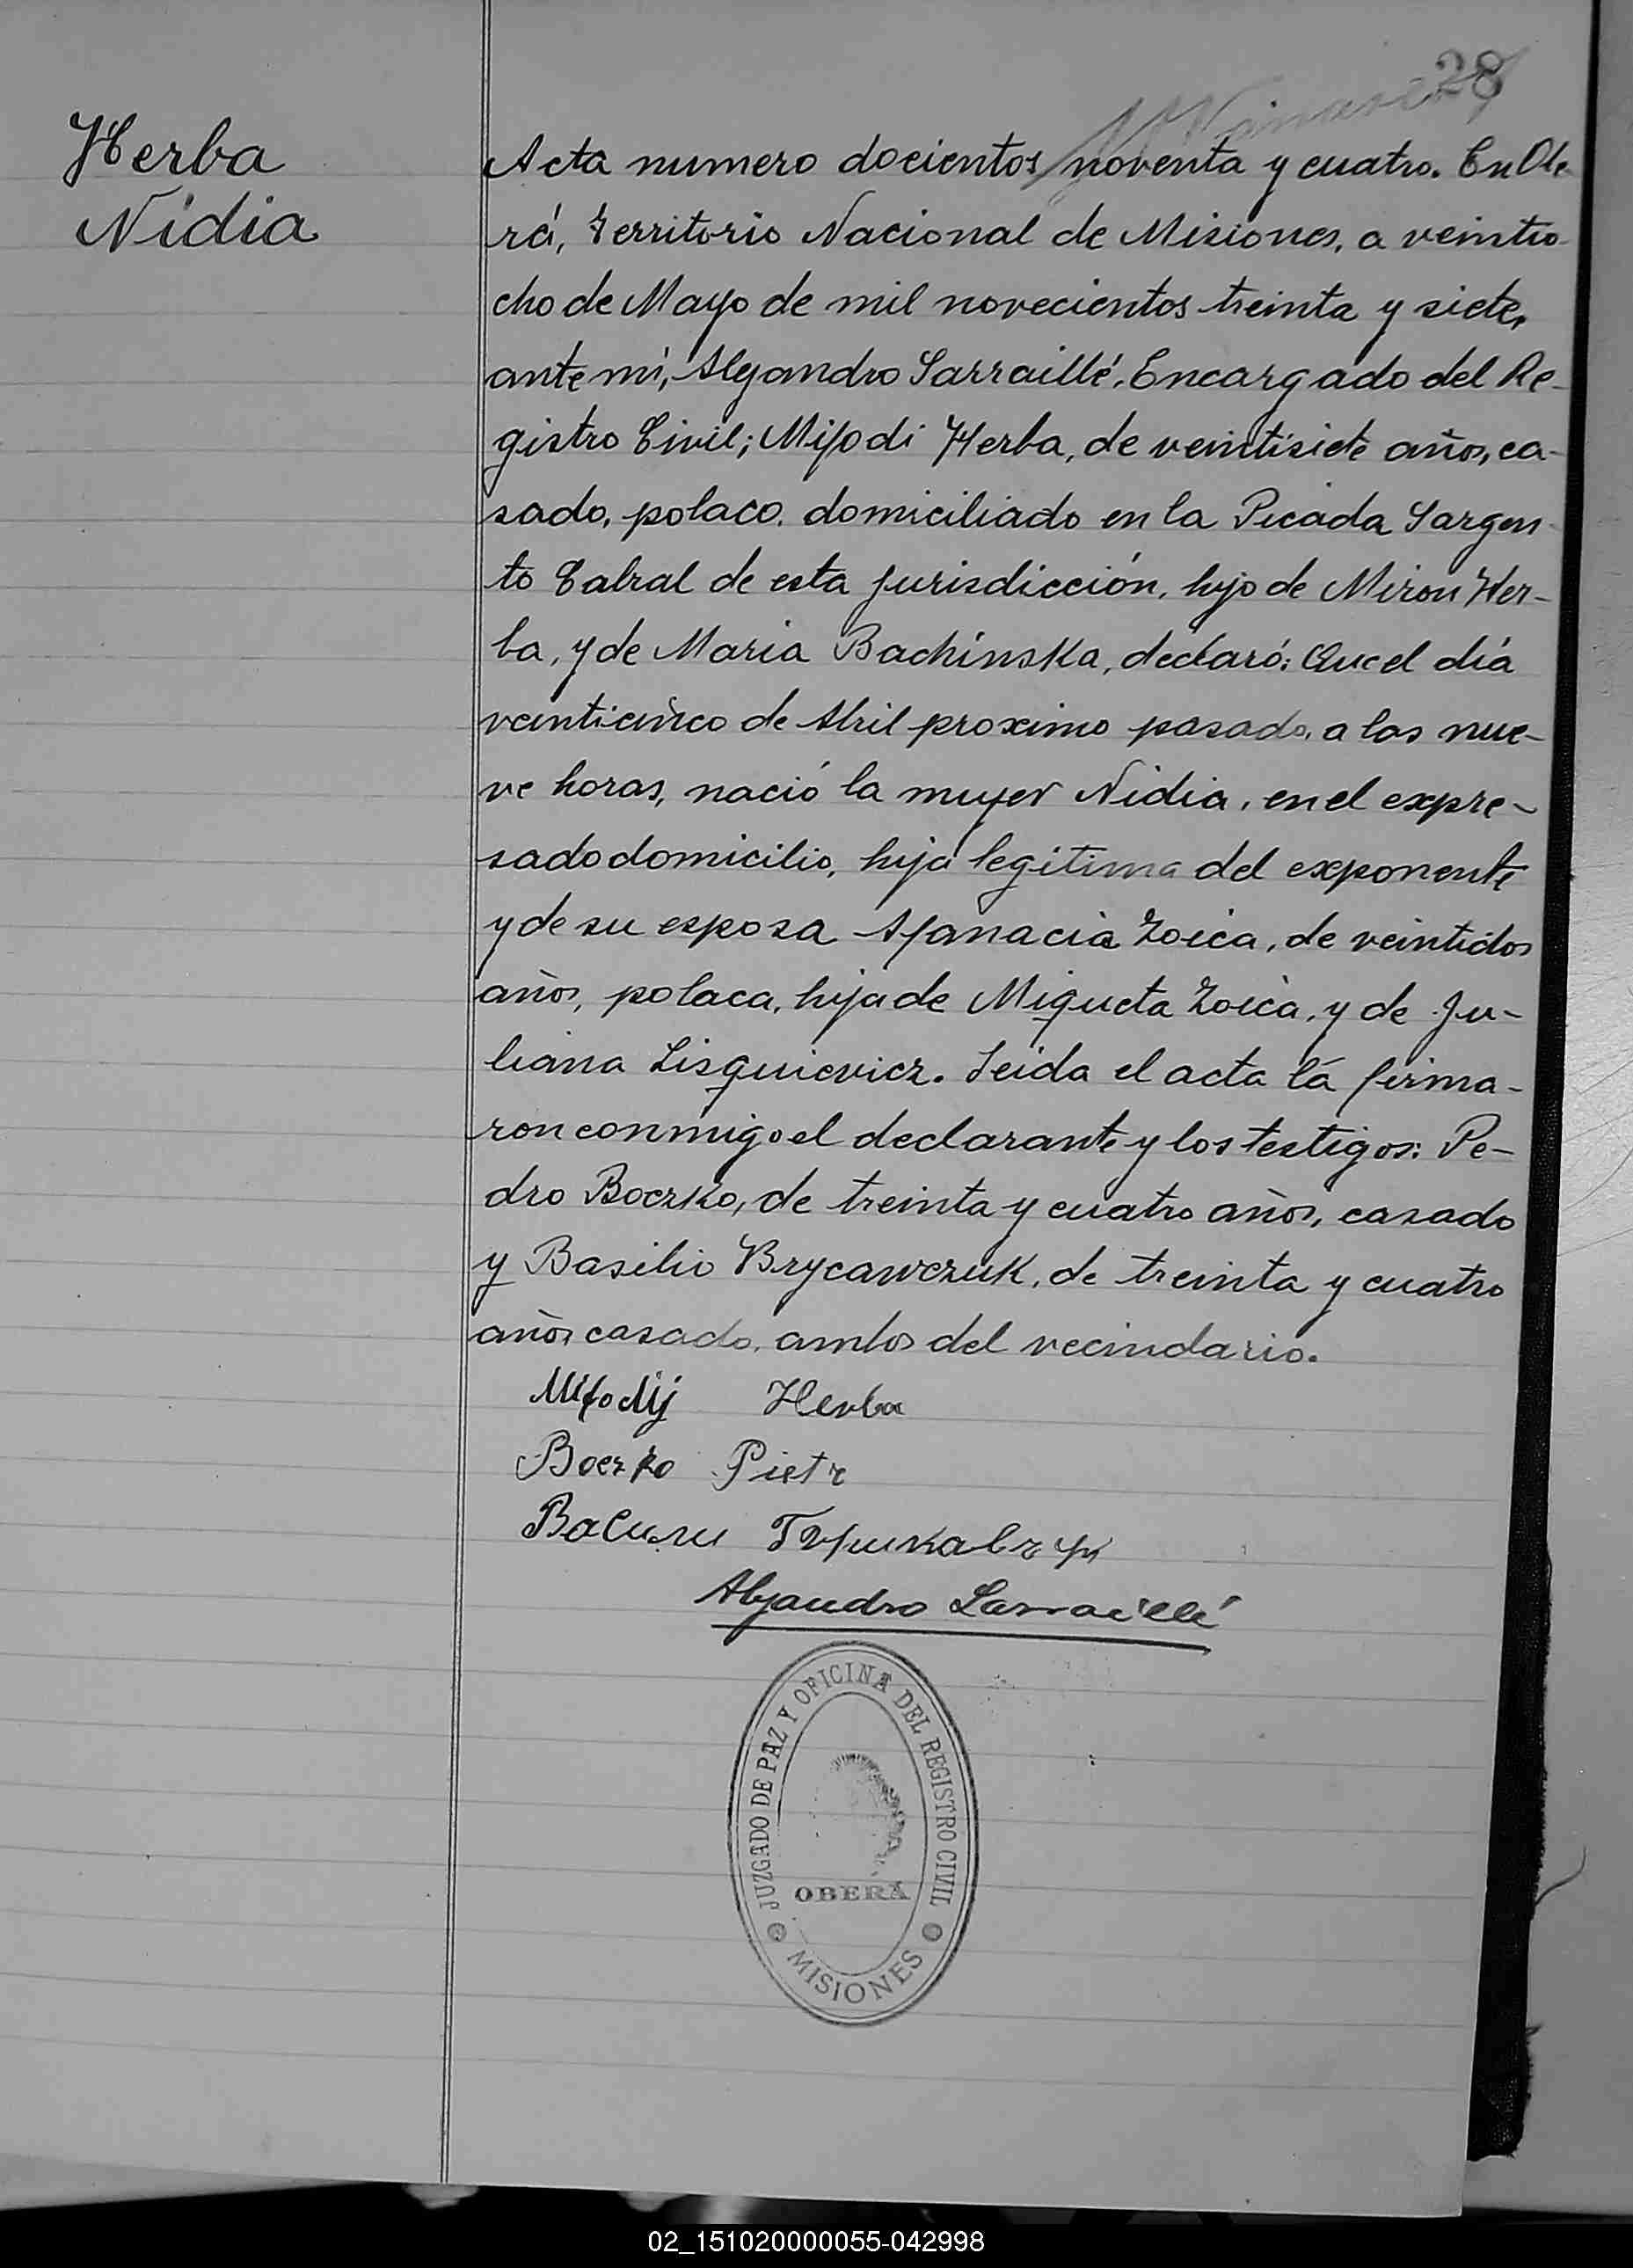 28
Herba
Nidia
Acta numero docientos noventa y cuatro. En Obe-
rá, Territorio Nacional de Misiones, a veintio-
cho de Mayo de mil novecientos treinta y siete,
ante mí, Alejandro Sarraillé, Encargado del Re-
gistro Civil; Mifodi Herba, de veintisiete años, ca-
sado, polaco, domiciliado en la Picada Sargen-
to Cabral de esta jurisdicción, hijo de Miron Her-
ba, y de Maria Bachinska, declaró: Que el día
veinticinco de Abril proximo pasado, a las nue-
ve horas, nació la mujer Nidia, en el expre-
sado domicilio, hija legitima del exponente
y de su esposa Afanacia Zoica, de veintidos
años, polaca, hija de Miqueta Zoica, y de Ju-
liana Lisquievicz. Leida el acta la firma-
ron conmigo el declarante y los testigos: Pe-
dro Boczko, de treinta y cuatro años, casado
y Basilio Brycawczuk, de treinta y cuatro
años casado, ambos del vecindario.
Mifodij Herba
Boczko Pietr
Васили
Alejandro Sarraillé
JUZGADO DE PAZ Y OFICINA DEL REGISTRO CIVIL
OBERÁ
MISIONES
02_151020000055-042998